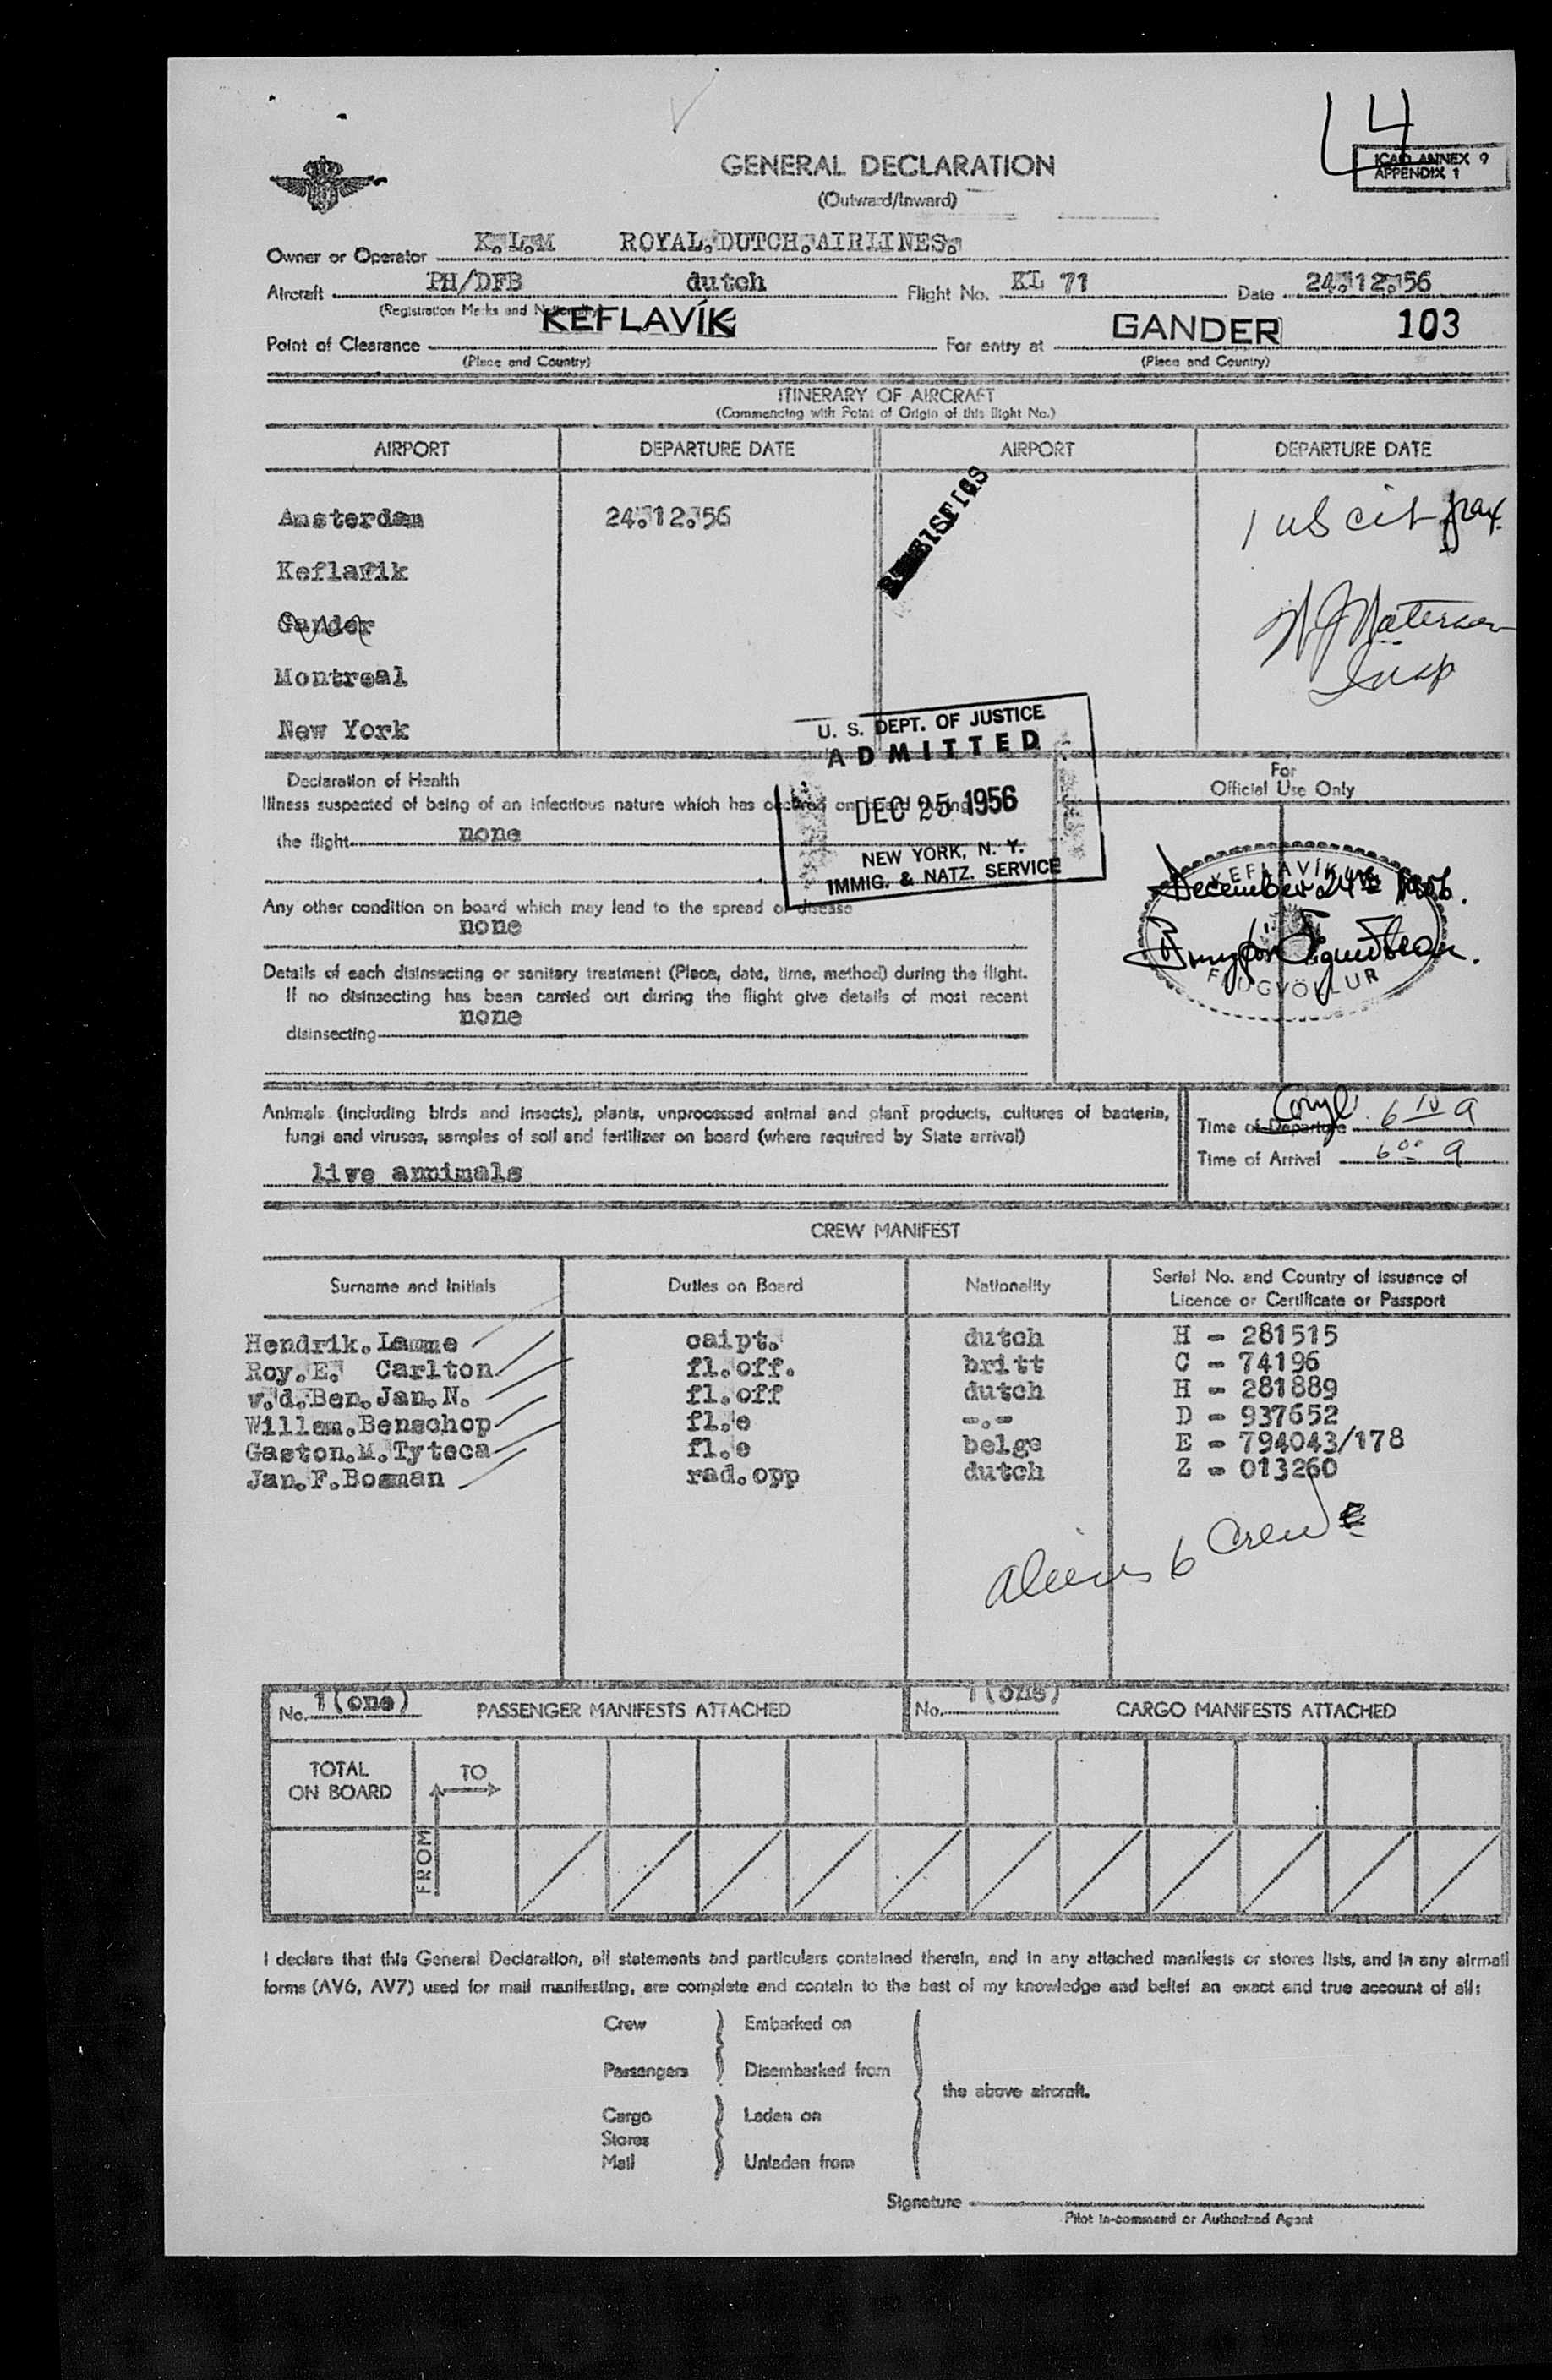 44
ICAO ANNEX 9
APPENDIX 1
GENERAL DECLARATION
(Outward/Inward)
Owner or Operator K.L.M ROYAL.DUTCH.AIRLINES.
Aircraft PH/DFB dutch Flight No. KL 71 Date 24.12.56
(Registration Marks and Nationality)
Point of Clearance KEFLAVÍK For entry at GANDER 103
(Place and Country) (Place and Country)
ITINERARY OF AIRCRAFT
(Commencing with Point of Origin of this flight No.)
AIRPORT DEPARTURE DATE AIRPORT DEPARTURE DATE
Amsterdam 24.12.56 1 us cit pax.
Keflafik
Gander
Montreal Insp
New York
U. S. DEPT. OF JUSTICE
ADMITTED
DEC 25 1956
NEW YORK, N. Y.
IMMIG. & NATZ. SERVICE
Declaration of Health
Illness suspected of being of an infectious nature which has occurred on board during
the flight none
Any other condition on board which may lead to the spread of disease
none
Details of each disinsecting or sanitary treatment (Place, date, time, method) during the flight.
If no disinsecting has been carried out during the flight give details of most recent
none
disinsecting
For
Official Use Only
KEFLAVÍKUR
December 24th 1956.
FLUGVÖLLUR
Animals (including birds and insects), plants, unprocessed animal and plant products, cultures of bacteria,
fungi and viruses, samples of soil and fertilizer on board (where required by State arrival)
live annimals
Time of Departure Compl. 6 10 a
Time of Arrival 6 00 a
CREW MANIFEST
Surname and Initials Duties on Board Nationality Serial No. and Country of Issuance of
Licence or Certificate or Passport
Hendrik.Lamme caipt. dutch H - 281515
Roy.E. Carlton fl.off. britt C - 74196
v.d.Ben.Jan.N. fl.off dutch H - 281889
Willem.Benschop fl.e -.- D - 937652
Gaston.M.Tyteca fl.e belge E - 794043/178
Jan.F.Bosman rad.opp dutch Z - 013260
aliens 6 Crew
No. 1(one) PASSENGER MANIFESTS ATTACHED No. 1(one) CARGO MANIFESTS ATTACHED
TOTAL
ON BOARD
TO
FROM
I declare that this General Declaration, all statements and particulars contained therein, and in any attached manifests or stores lists, and in any airmail
forms (AV6, AV7) used for mail manifesting, are complete and contain to the best of my knowledge and belief an exact and true account of all:
Crew Embarked on
Passengers Disembarked from
the above aircraft.
Cargo Laden on
Stores
Mail Unladen from
Signature
Pilot in-command or Authorized Agent